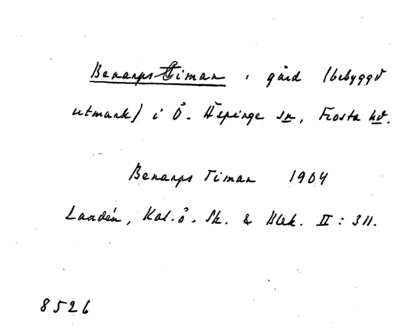 Benarps Timan, gård (bebyggd
utmark) i Ö. Äspinge sn, Frosta hd.
Benarps Timan 1904
Landén, Kal. ö. Sk. & Blek. II: 311.
8526